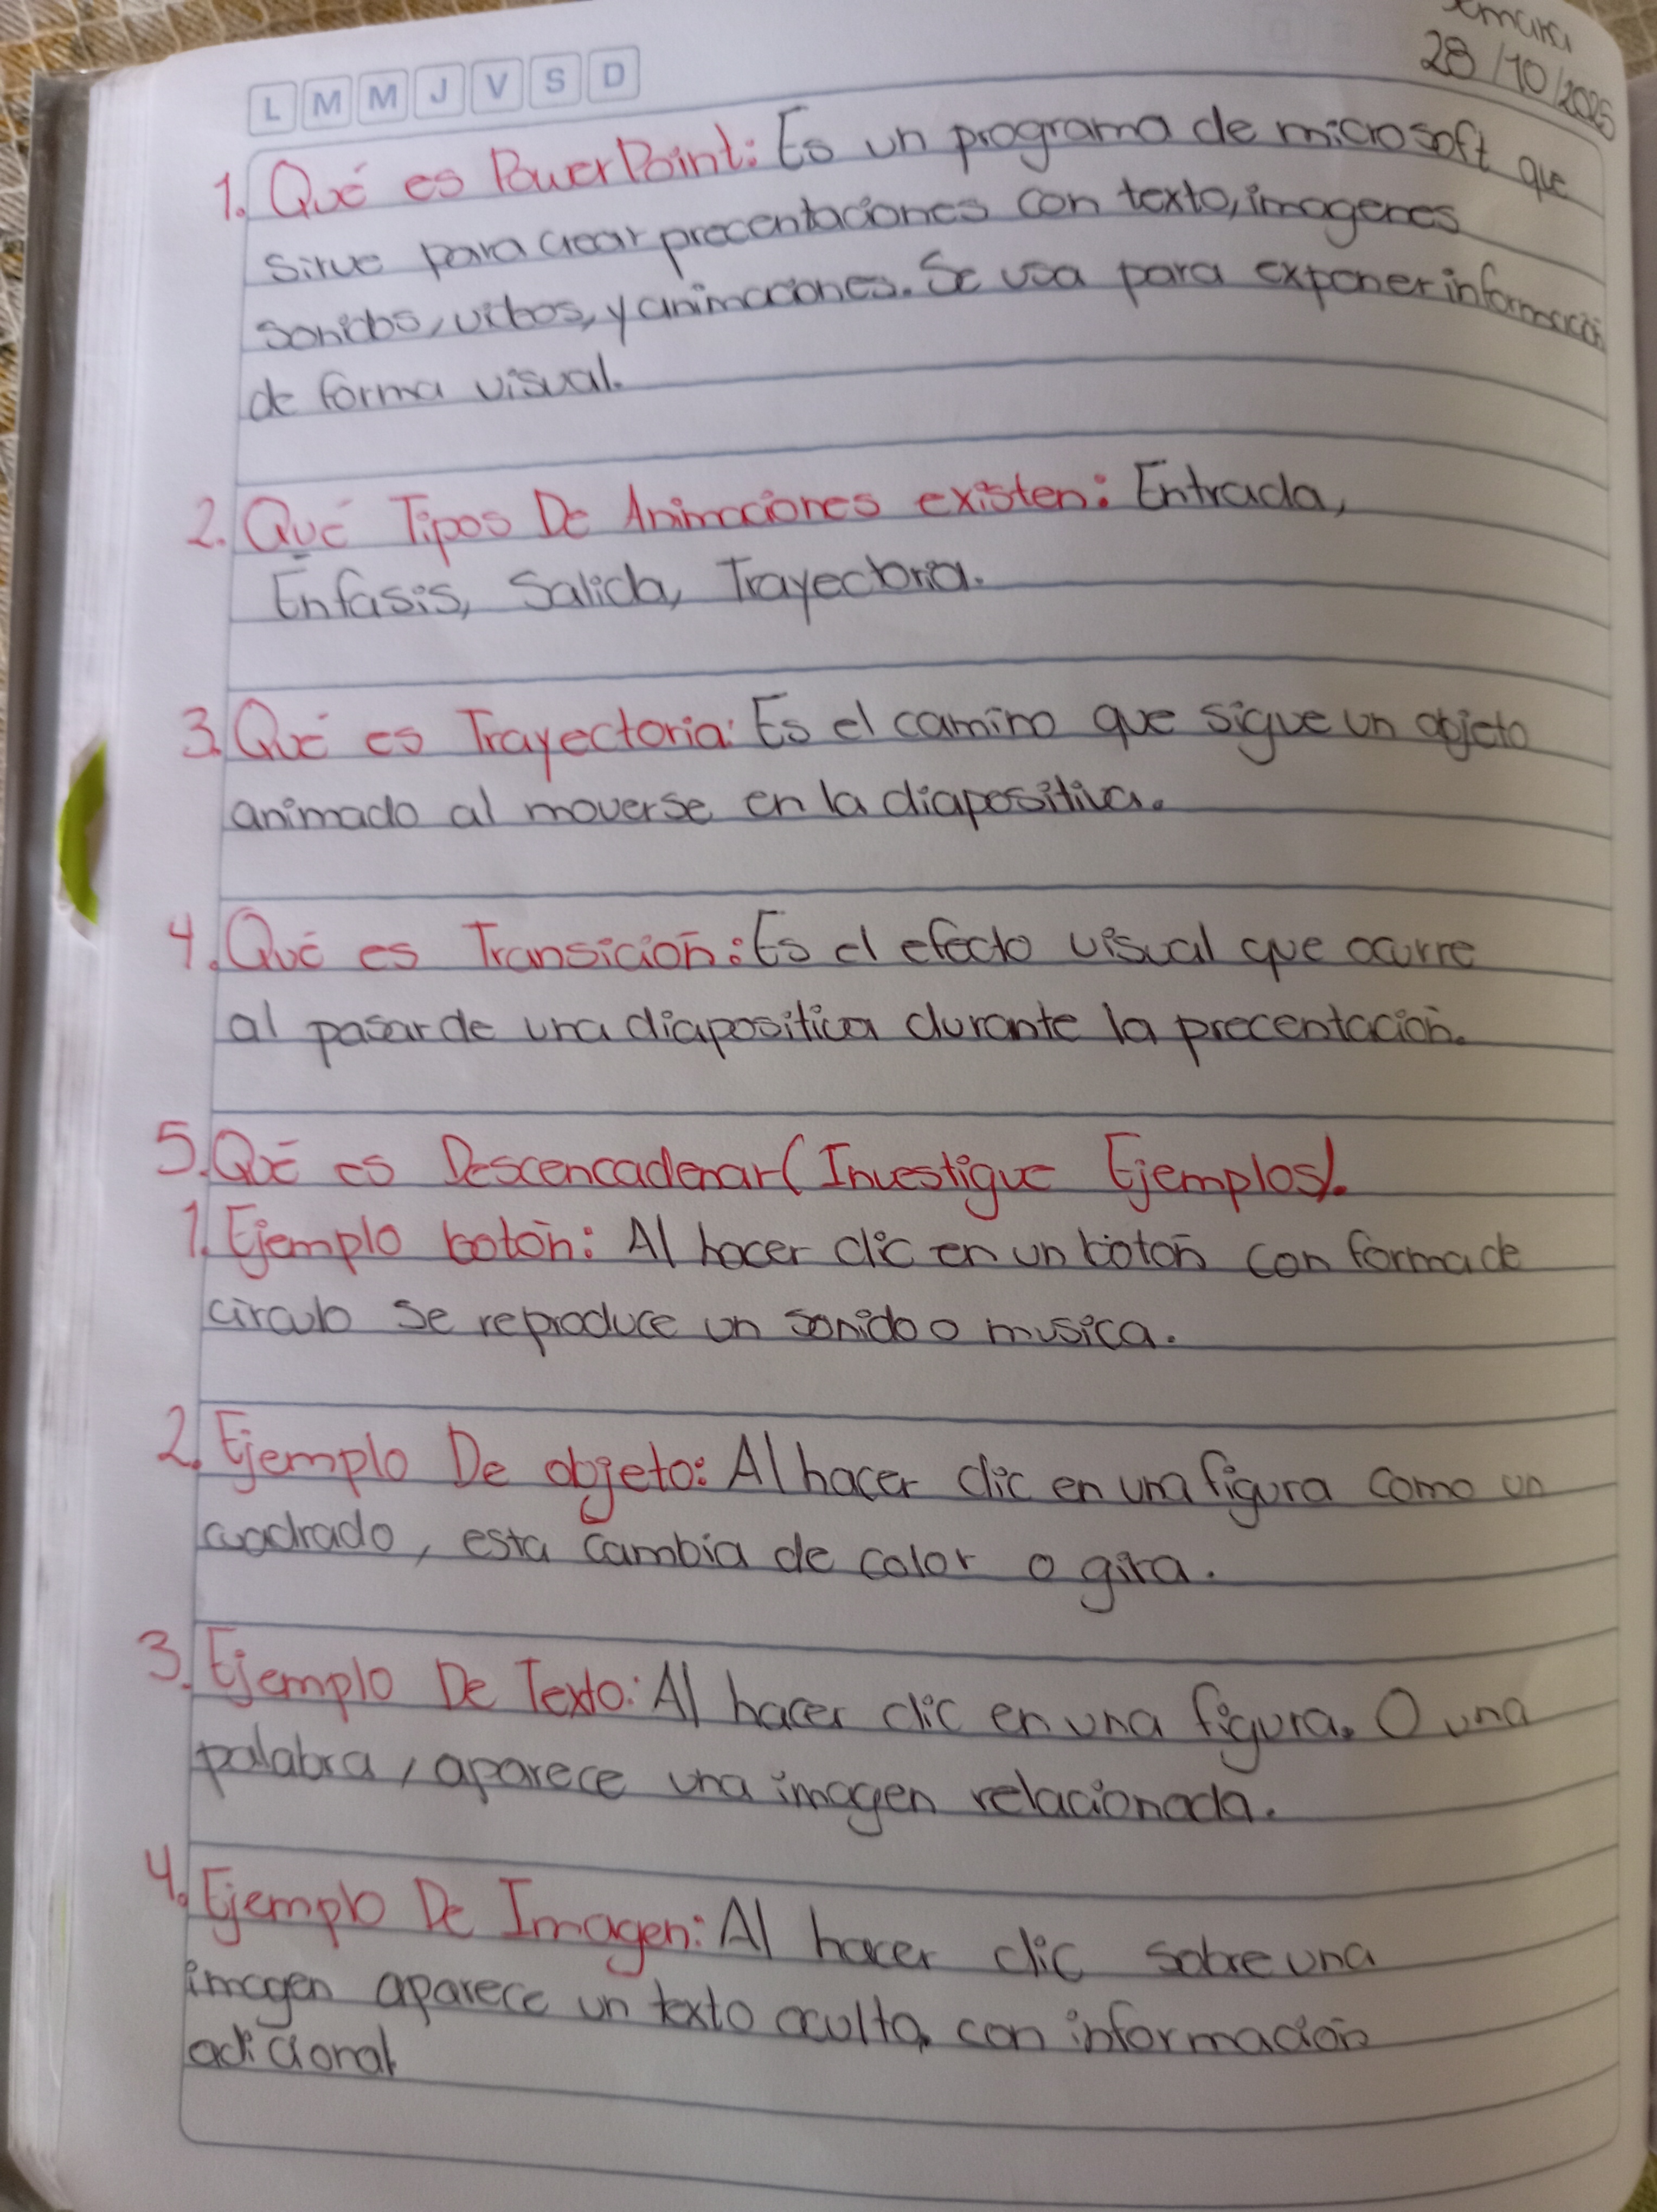 28/10/2025
L M M J V S D
1. Qué es PowerPoint: Es un programa de microsoft que
sirve para crear precentaciones con texto, imagenes
sonidos, videos, y animaciones. Se usa para exponer información
de forma visual.
2. Qué Tipos De Animaciones existen: Entrada,
Enfasis, Salida, Trayectoria.
3. Qué es Trayectoria: Es el camino que sigue un objeto
animado al moverse en la diapositiva.
4. Qué es Transición: Es el efecto visual que ocurre
al pasar de una diapositiva durante la precentación.
5. Qué es Descencadenar (Investigue Ejemplos).
1. Ejemplo botón: Al hacer clic en un botón con forma de
circulo se reproduce un sonido o musica.
2. Ejemplo De objeto: Al hacer clic en una figura como un
cuadrado, esta cambia de color o gira.
3. Ejemplo De Texto: Al hacer clic en una figura. O una
palabra, aparece una imagen relacionada.
4. Ejemplo De Imagen: Al hacer clic sobre una
imagen aparece un texto oculto, con información
adicional